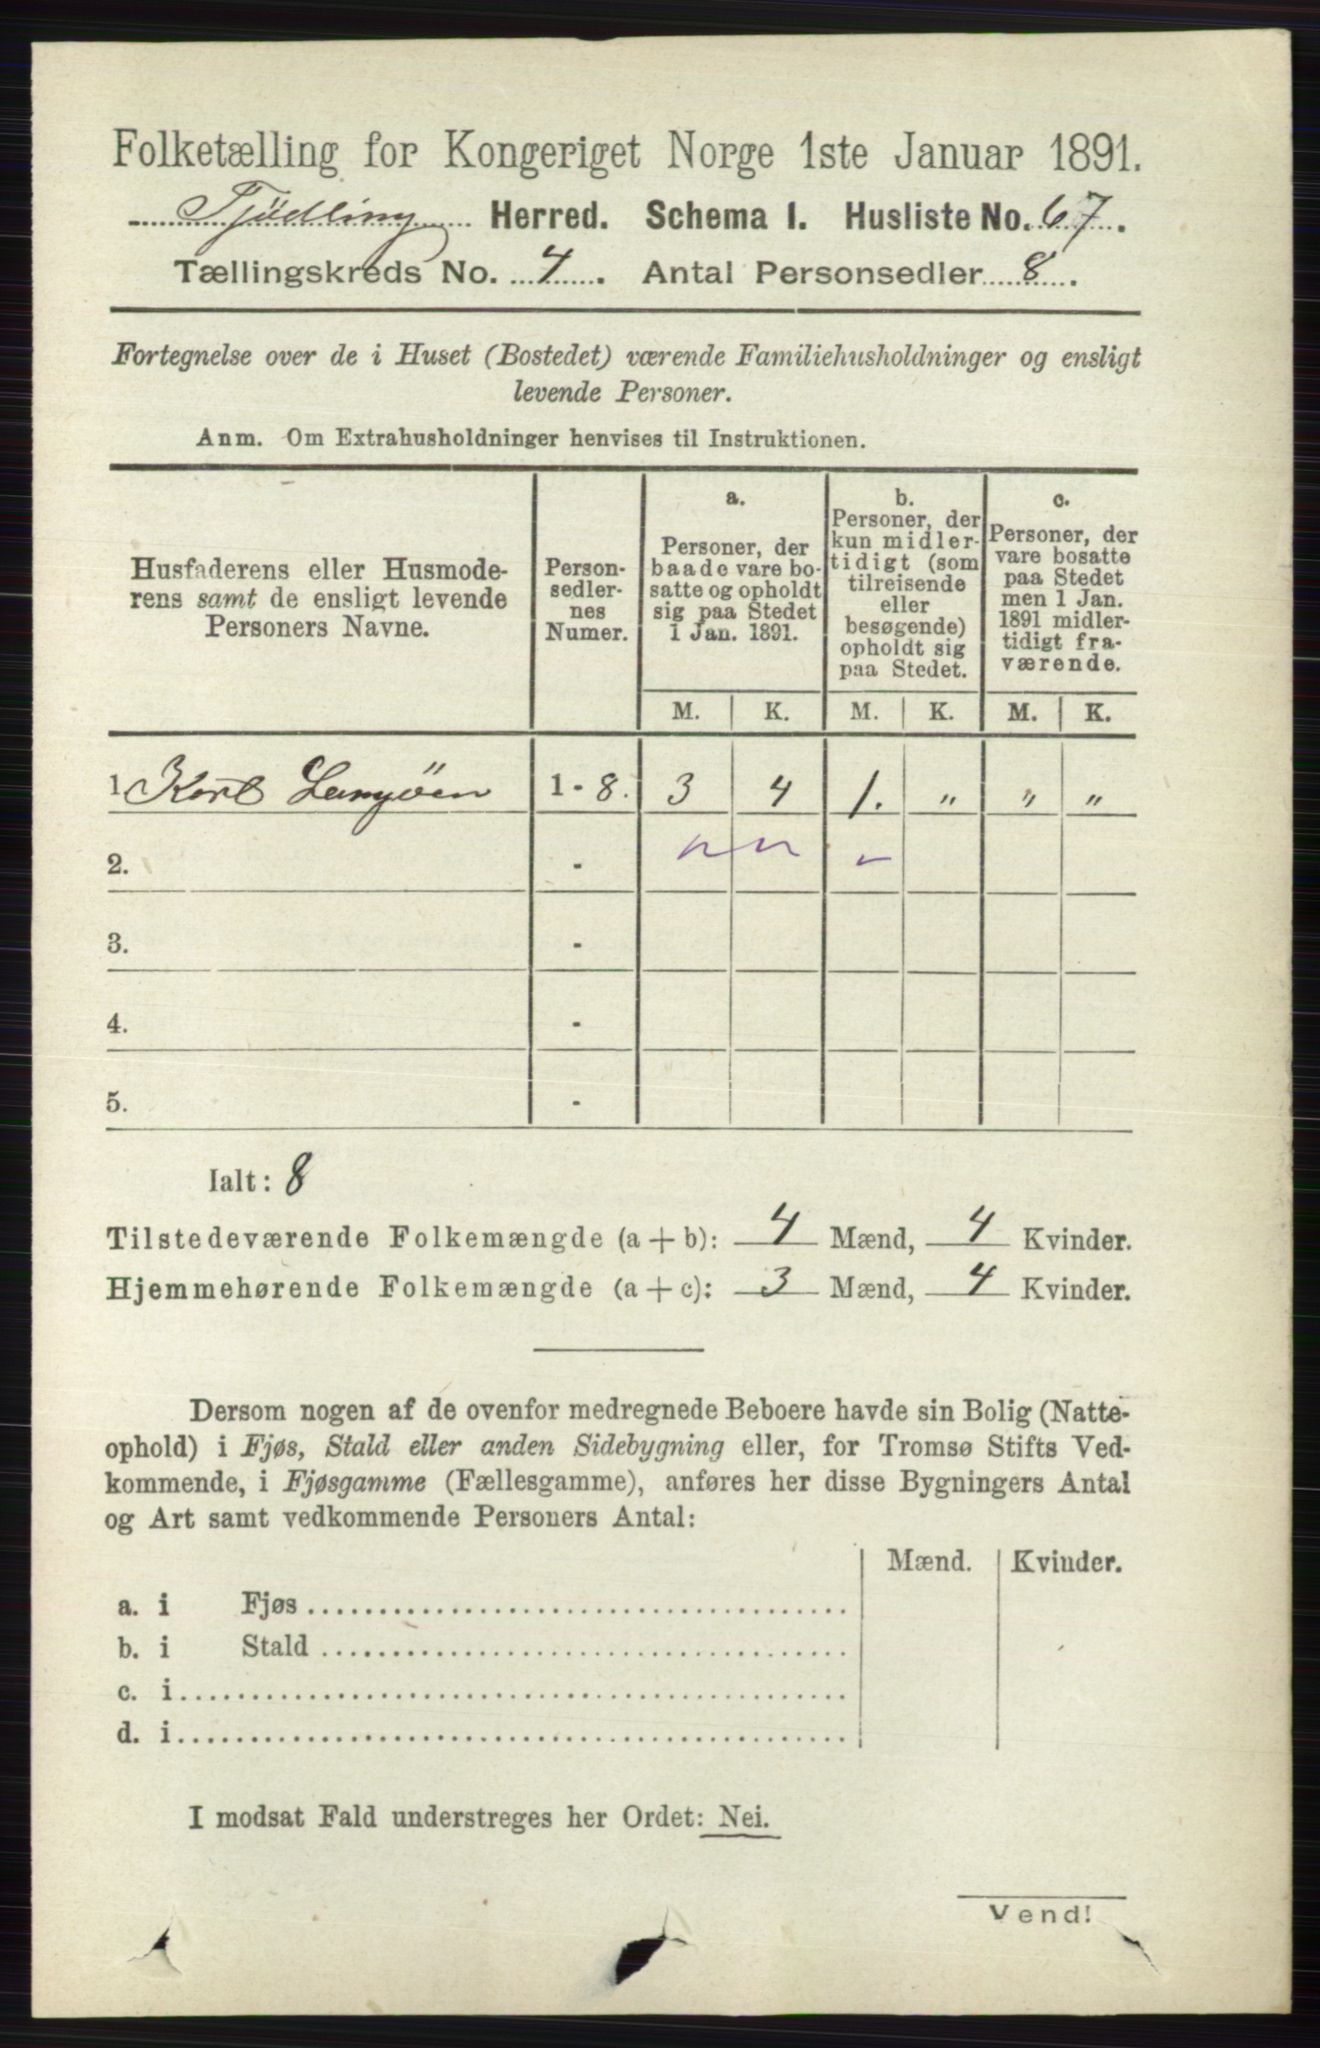 Folketælling for Kongeriget Norge 1ste Januar 1891.
Tjödling Herred. Schema I. Husliste No. 67.
Tællingskreds No. 4. Antal Personsedler 8.
Fortegnelse over de i Huset (Bostedet) værende Familiehusholdninger og ensligt
levende Personer.
Anm. Om Extrahusholdninger henvises til Instruktionen.
Husfaderens eller Husmode-
rens samt de ensligt levende
Personers Navne.
Person-
sedler-
nes
Numer.
a.
Personer, der
baade vare bo-
satte og opholdt
sig paa Stedet
1 Jan. 1891.
b.
Personer, der
kun midler-
tidigt (som
tilreisende
eller
besøgende)
opholdt sig
paa Stedet.
c.
Personer, der
vare bosatte
paa Stedet
men 1 Jan.
1891 midler-
tidigt fra-
værende.
M. K. M. K. M. K.
1. 1 - 8. 3 4 1. " " "
2. -
3. -
4. -
5. -
Ialt: 8
Tilstedeværende Folkemængde (a + b): 4 Mænd, 4 Kvinder.
Hjemmehørende Folkemængde (a + c): 3 Mænd, 4 Kvinder.
Dersom nogen af de ovenfor medregnede Beboere havde sin Bolig (Natte-
ophold) i Fjøs, Stald eller anden Sidebygning eller, for Tromsø Stifts Ved-
kommende, i Fjøsgamme (Fællesgamme), anføres her disse Bygningers Antal
og Art samt vedkommende Personers Antal:
Mænd. Kvinder.
a. i Fjøs
b. i Stald
c. i
d. i
I modsat Fald understreges her Ordet: Nei.
Vend!